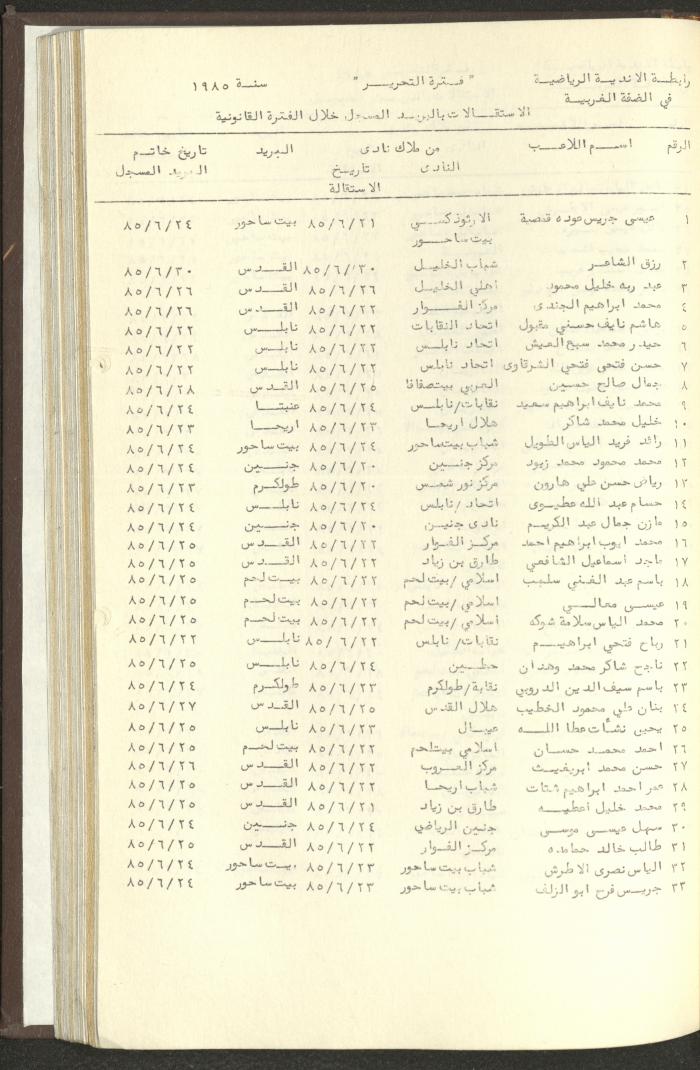 رابطة الاندية الرياضية " فترة التحرير " سنة ١٩٨٥
في الضفة الغربية
الاستقالات بالبريد المسجل خلال الفترة القانونية
الرقم اسم اللاعب من ملاك نادي البريد تاريخ خاتم
النادي تاريخ البريد المسجل
الاستقالة
١ عيسى جريس عوده قمصية الارثوذكسي ٨٥/٦/٢١ بيت ساحور ٨٥/٦/٢٤
بيت ساحور
٢ رزق الشاعر شباب الخليل ٨٥/٦/٣٠ القدس ٨٥/٦/٣٠
٣ عبد ربه خليل محمود اهلي الخليل ٨٥/٦/٢٦ القدس ٨٥/٦/٢٦
٤ محمد ابراهيم الجندي مركز الفوار ٨٥/٦/٢٢ القدس ٨٥/٦/٢٦
٥ هاشم نايف حسني مقبول اتحاد النقابات ٨٥/٦/٢٢ نابلس ٨٥/٦/٢٢
٦ حيدر محمد سبع العيش اتحاد نابلس ٨٥/٦/٢٢ نابلس ٨٥/٦/٢٢
٧ حسن فتحي فتحي الشرقاوي اتحاد نابلس ٨٥/٦/٢٢ نابلس ٨٥/٦/٢٢
٨ جمال صالح حسين العربي بيتصفافا ٨٥/٦/٢٥ القدس ٨٥/٦/٢٨
٩ محمد نايف ابراهيم سعيد نقابات/نابلس ٨٥/٦/٢٤ عنبتا ٨٥/٦/٢٤
١٠ خليل محمد شاكر هلال اريحا ٨٥/٦/٢٣ اريحا ٨٥/٦/٢٣
١١ رائد فريد الياس الطويل شباب بيت ساحور ٨٥/٦/٢٤ بيت ساحور ٨٥/٦/٢٤
١٢ محمد محمود محمد زيود مركز جنين ٨٥/٦/٢٠ جنين ٨٥/٦/٢٤
١٣ رياض حسن علي هارون مركز نور شمس ٨٥/٦/٢٠ طولكرم ٨٥/٦/٢٣
١٤ حسام عبد الله عطيوي اتحاد/نابلس ٨٥/٦/٢٤ نابلس ٨٥/٦/٢٤
١٥ مازن جمال عبد الكريم نادي جنين ٨٥/٦/٢٠ جنين ٨٥/٦/٢٤
١٦ محمد ايوب ابراهيم احمد مركز الفوار ٨٥/٦/٢٢ القدس ٨٥/٦/٢٥
١٧ ماجد اسماعيل الشافعي طارق بن زياد ٨٥/٦/٢٢ القدس ٨٥/٦/٢٥
١٨ باسم عبد الغني اسلامي/بيت لحم ٨٥/٦/٢٢ بيت لحم ٨٥/٦/٢٥
١٩ عيسى معالي اسلامي/بيت لحم ٨٥/٦/٢٢ بيت لحم ٨٥/٦/٢٥
٢٠ محمد الياس سلامة شوكه اسلامي/بيت لحم ٨٥/٦/٢٢ بيت لحم ٨٥/٦/٢٥
٢١ رباح فتحي ابراهيم نقابات/نابلس ٨٥/٦/٢٢ نابلس ٨٥/٦/٢٢
٢٢ ناجح شاكر محمد وهدان حطين ٨٥/٦/٢٤ نابلس ٨٥/٦/٢٥
٢٣ باسم سيف الدين الدروبي نقابة/طولكرم ٨٥/٦/٢٣ طولكرم ٨٥/٦/٢٤
٢٤ بنان علي محمود الخطيب هلال القدس ٨٥/٦/٢٥ القدس ٨٥/٦/٢٧
٢٥ يحيى نشأت عطا الله عيبال ٨٥/٦/٢٣ نابلس ٨٥/٦/٢٥
٢٦ احمد محمد حسان اسلامي بيتلحم ٨٥/٦/٢٢ بيت لحم ٨٥/٦/٢٥
٢٧ حسن محمد ابريغيث مركز العروب ٨٥/٦/٢٢ القدس ٨٥/٦/٢٦
٢٨ عمر احمد ابراهيم شتات شباب اريحا ٨٥/٦/٢٢ القدس ٨٥/٦/٢٥
٢٩ محمد خليل اعطيه طارق بن زياد ٨٥/٦/٢١ القدس ٨٥/٦/٢٥
٣٠ سهل عيسى موسى جنين الرياضي ٨٥/٦/٢٤ جنين ٨٥/٦/٢٤
٣١ طالب خالد حمامده مركز الفوار ٨٥/٦/٢٢ القدس ٨٥/٦/٢٥
٣٢ الياس نصري الاطرش شباب بيت ساحور ٨٥/٦/٢٣ بيت ساحور ٨٥/٦/٢٤
٣٣ جريس فرح ابو الزلف شباب بيت ساحور ٨٥/٦/٢٣ بيت ساحور ٨٥/٦/٢٤